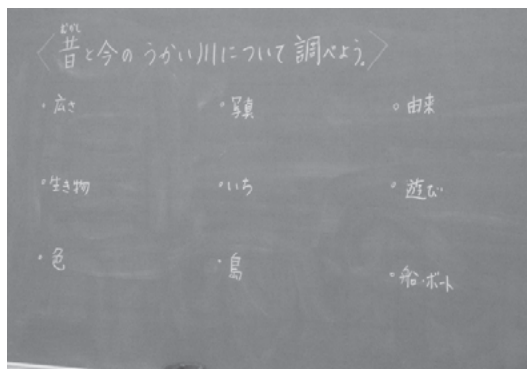 むかし
〈昔と今のうかい川について調べよう。〉
・広さ ・写真 ・由来
・生き物 ・いち ・遊び
・色 ・鳥 ・船・ボート